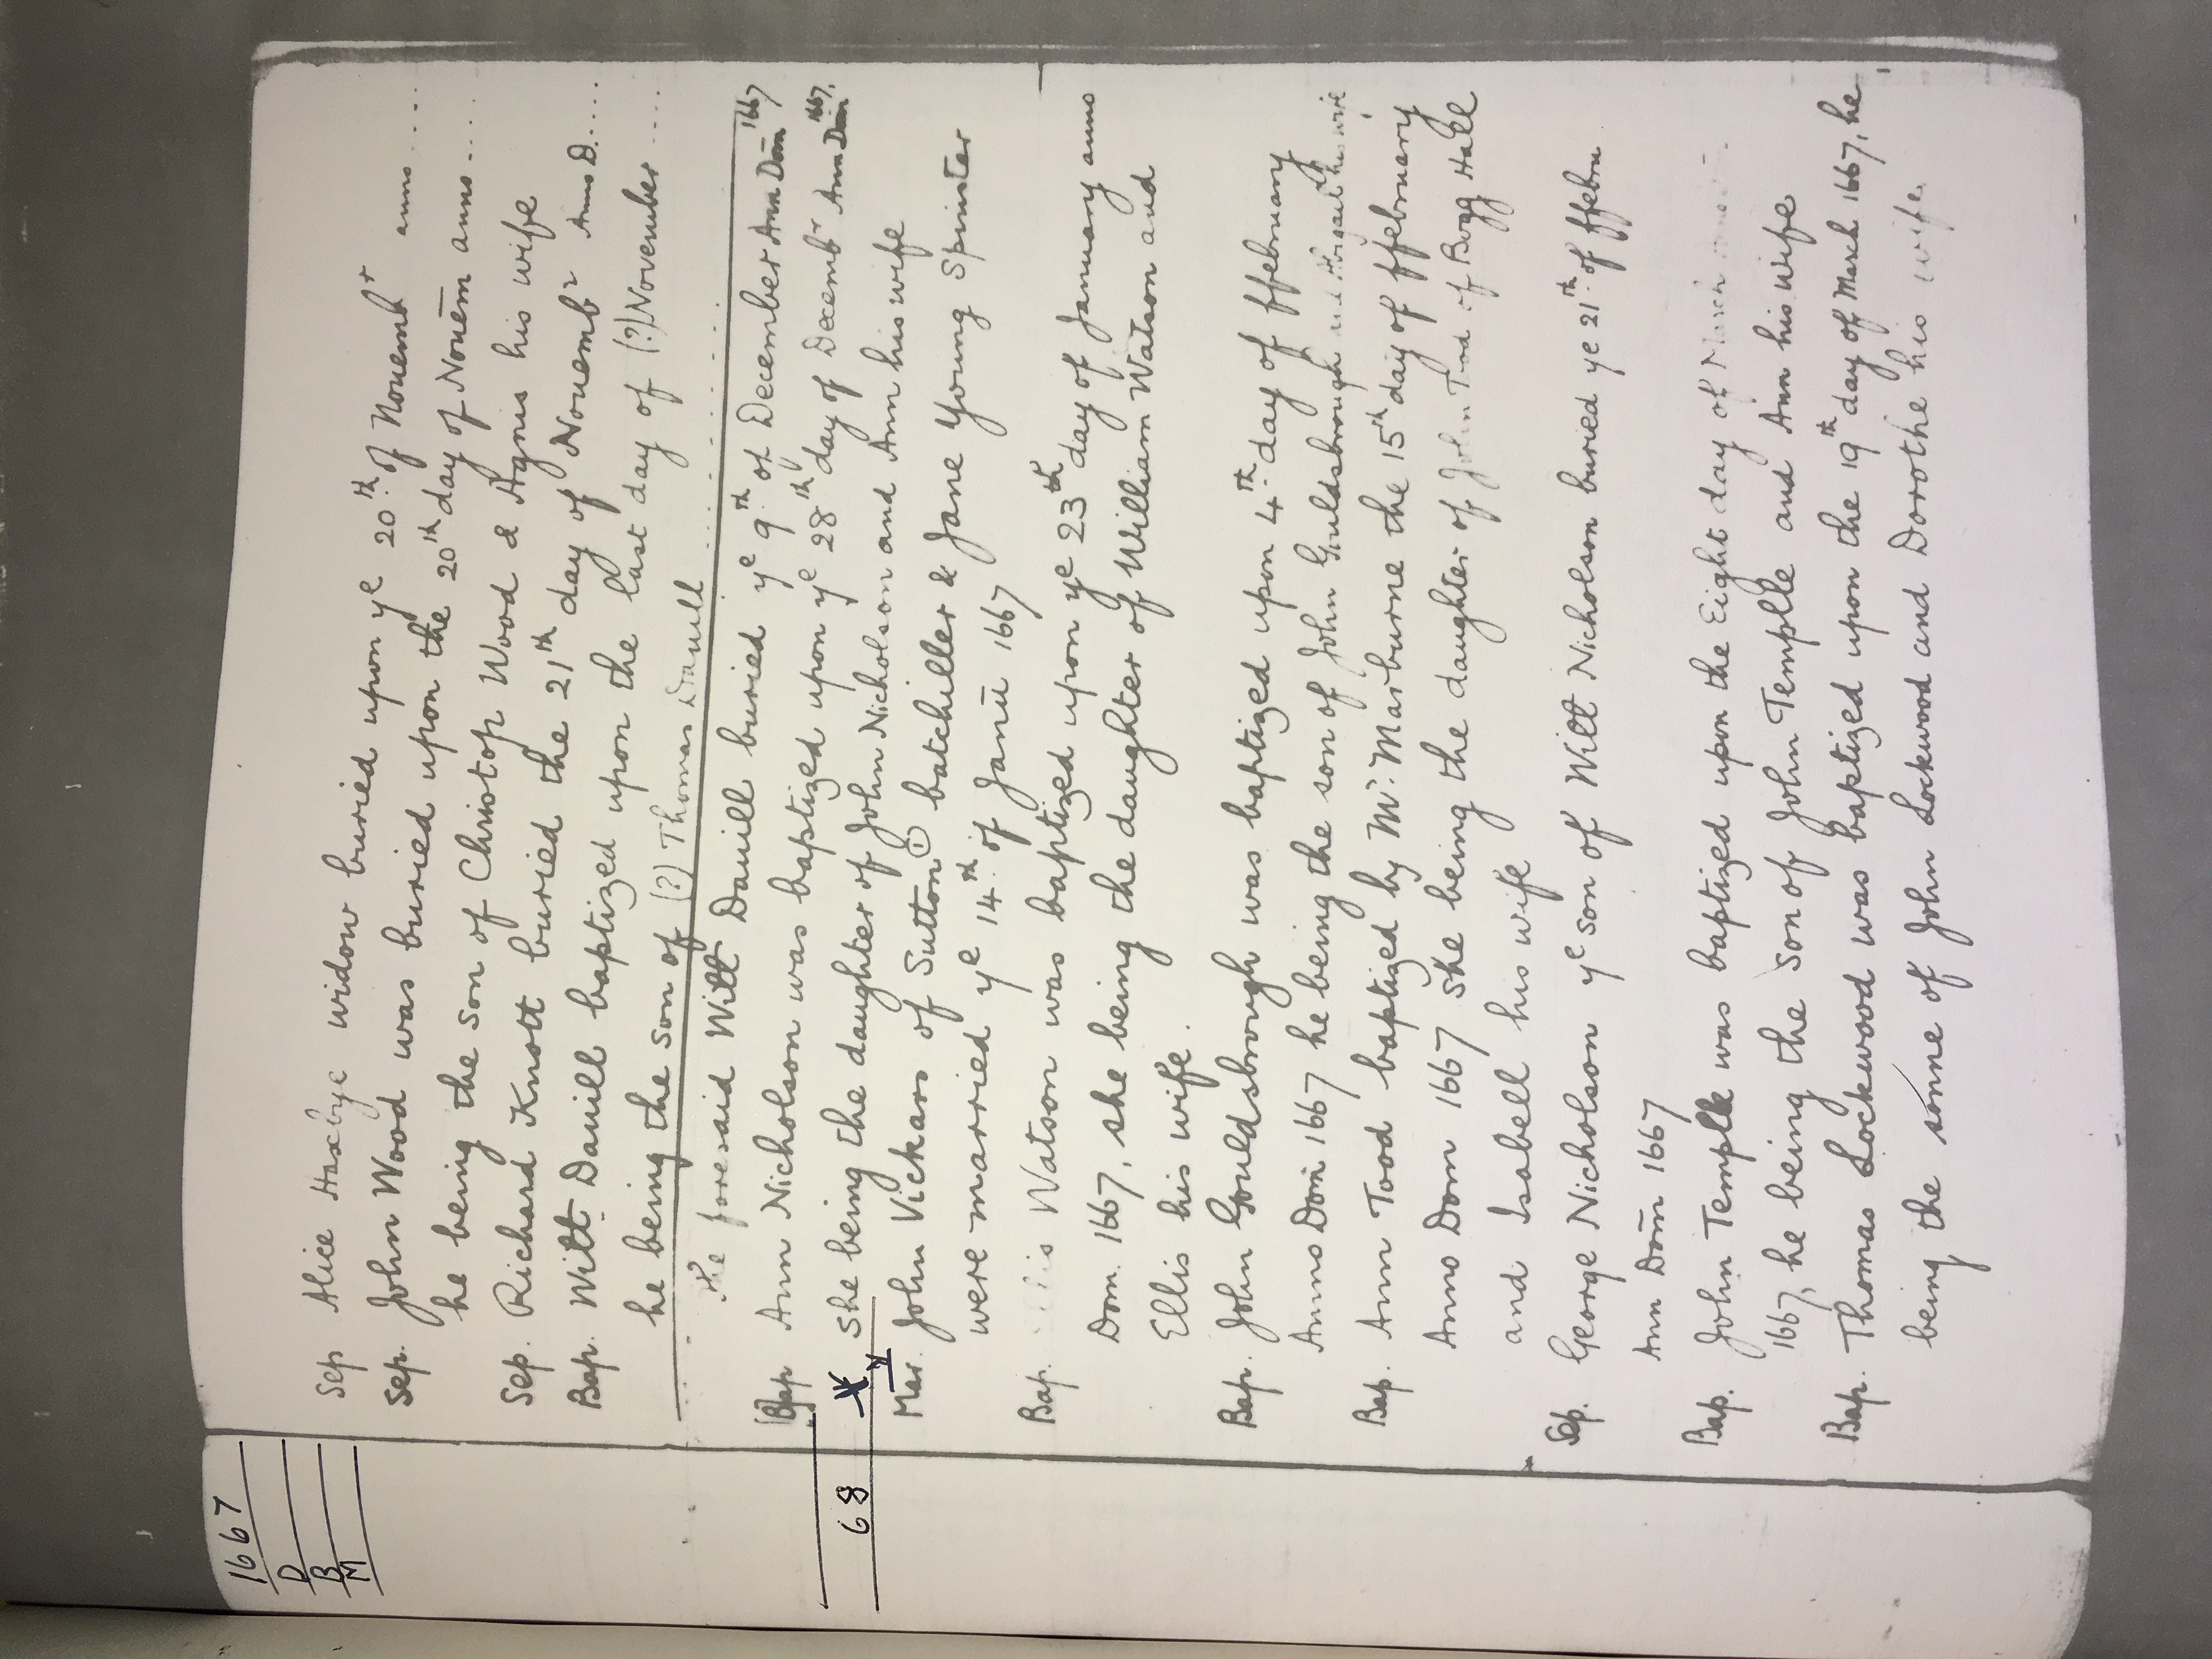 1667
D
B
M
Sep Alice Haxbye widow buried upon ye 20th of Nouembr anno ....
Sep. John Wood was buried upon the 20th day of Nouem anno ....
he being the son of Christop Wood & Agnis his wife
Sep. Richard Knott buried the 21th day of Nouembr Anno D. ....
Bap. Witt Dauill baptized upon the last day of (?) November ....
he being the son of (?) Thomas Dauill ..........
the foresaid Witt Dauill buried ye 9th of December Ann Dom 1667
Bap Ann Nicholson was baptized upon ye 28th day of Decembr Ann Dom 1667.
68 she being the daughter of John Nicholson and Ann his wife
Mar. John Vickars of Sutton batchiller & Jane Young Spinster
were married ye 14th of Janu 1667
Bap. Watson was baptized upon ye 23th day of January anno
Dom. 1667, she being the daughter of William Watson and
Ellis his wife.
Bap. John Gouldsbrough was baptized upon 4th day of ffebruary
Anno Dom 1667 he being the son of John Gouldsbrough his wife
Bap. Ann Tood baptized by Mr. Marburne the 15th day of ffebruary
Anno Dom 1667 she being the daughter of John Tood of Bogg Hall
and Isabell his wife
Sep. George Nicholson ye son of Witt Nicholson buried ye 21th of ffebru
Ann Dom 1667
Bap. John Temple was baptized upon the Eight day of March
1667, he being the son of John Temple and Ann his wife
Bap. Thomas Lockwood was baptized upon the 19th day of March 1667, he
being the sonne of John Lockwood and Dorothe his wife.